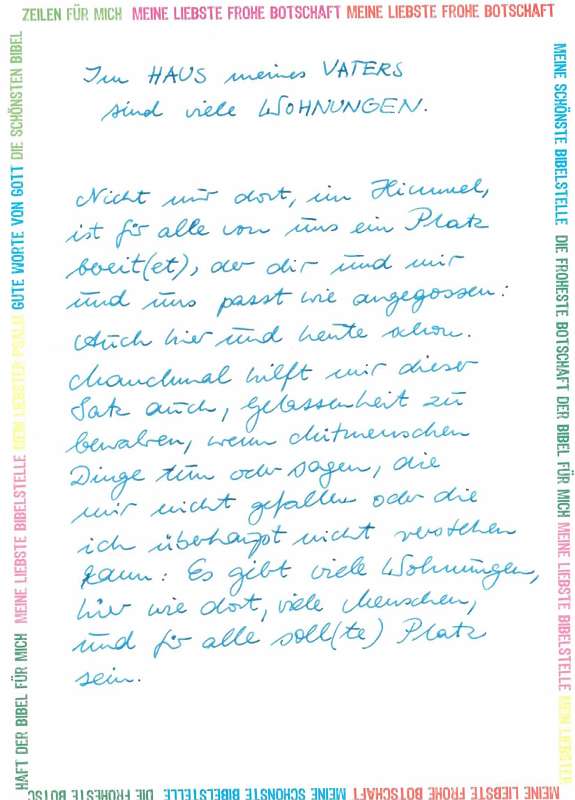 ZEILEN FÜR MICH MEINE LIEBSTE FROHE BOTSCHAFT MEINE LIEBSTE FROHE BOTSCHAFT
Im HAUS meines VATERS
sind viele WOHNUNGEN.
Nicht nur dort, im Himmel,
ist für alle von uns ein Platz
bereit(et), der dir und mir
und uns passt wie angegossen:
Auch hier und heute schon.
Manchmal hilft mir dieser
Satz auch, Gelassenheit zu
bewahren, wenn Mitmenschen
Dinge tun oder sagen, die
mir nicht gefallen oder die
ich überhaupt nicht verstehen
kann: Es gibt viele Wohnungen,
hier wie dort, viele Menschen,
und für alle soll(te) Platz
sein.
MEINE SCHÖNSTE BIBELSTELLE DIE FROHESTE BOTSCHAFT DER BIBEL FÜR MICH MEINE LIEBSTE BIBELSTELLE MEIN LIEBSTER
MEINE LIEBSTE FROHE BOTSCHAFT MEINE SCHÖNSTE BIBELSTELLE DIE FROHESTE BOTSC
HAFT DER BIBEL FÜR MICH MEINE LIEBSTE BIBELSTELLE MEIN LIEBSTER PSALM GUTE WORTE VON GOTT DIE SCHÖNSTEN BIBEL